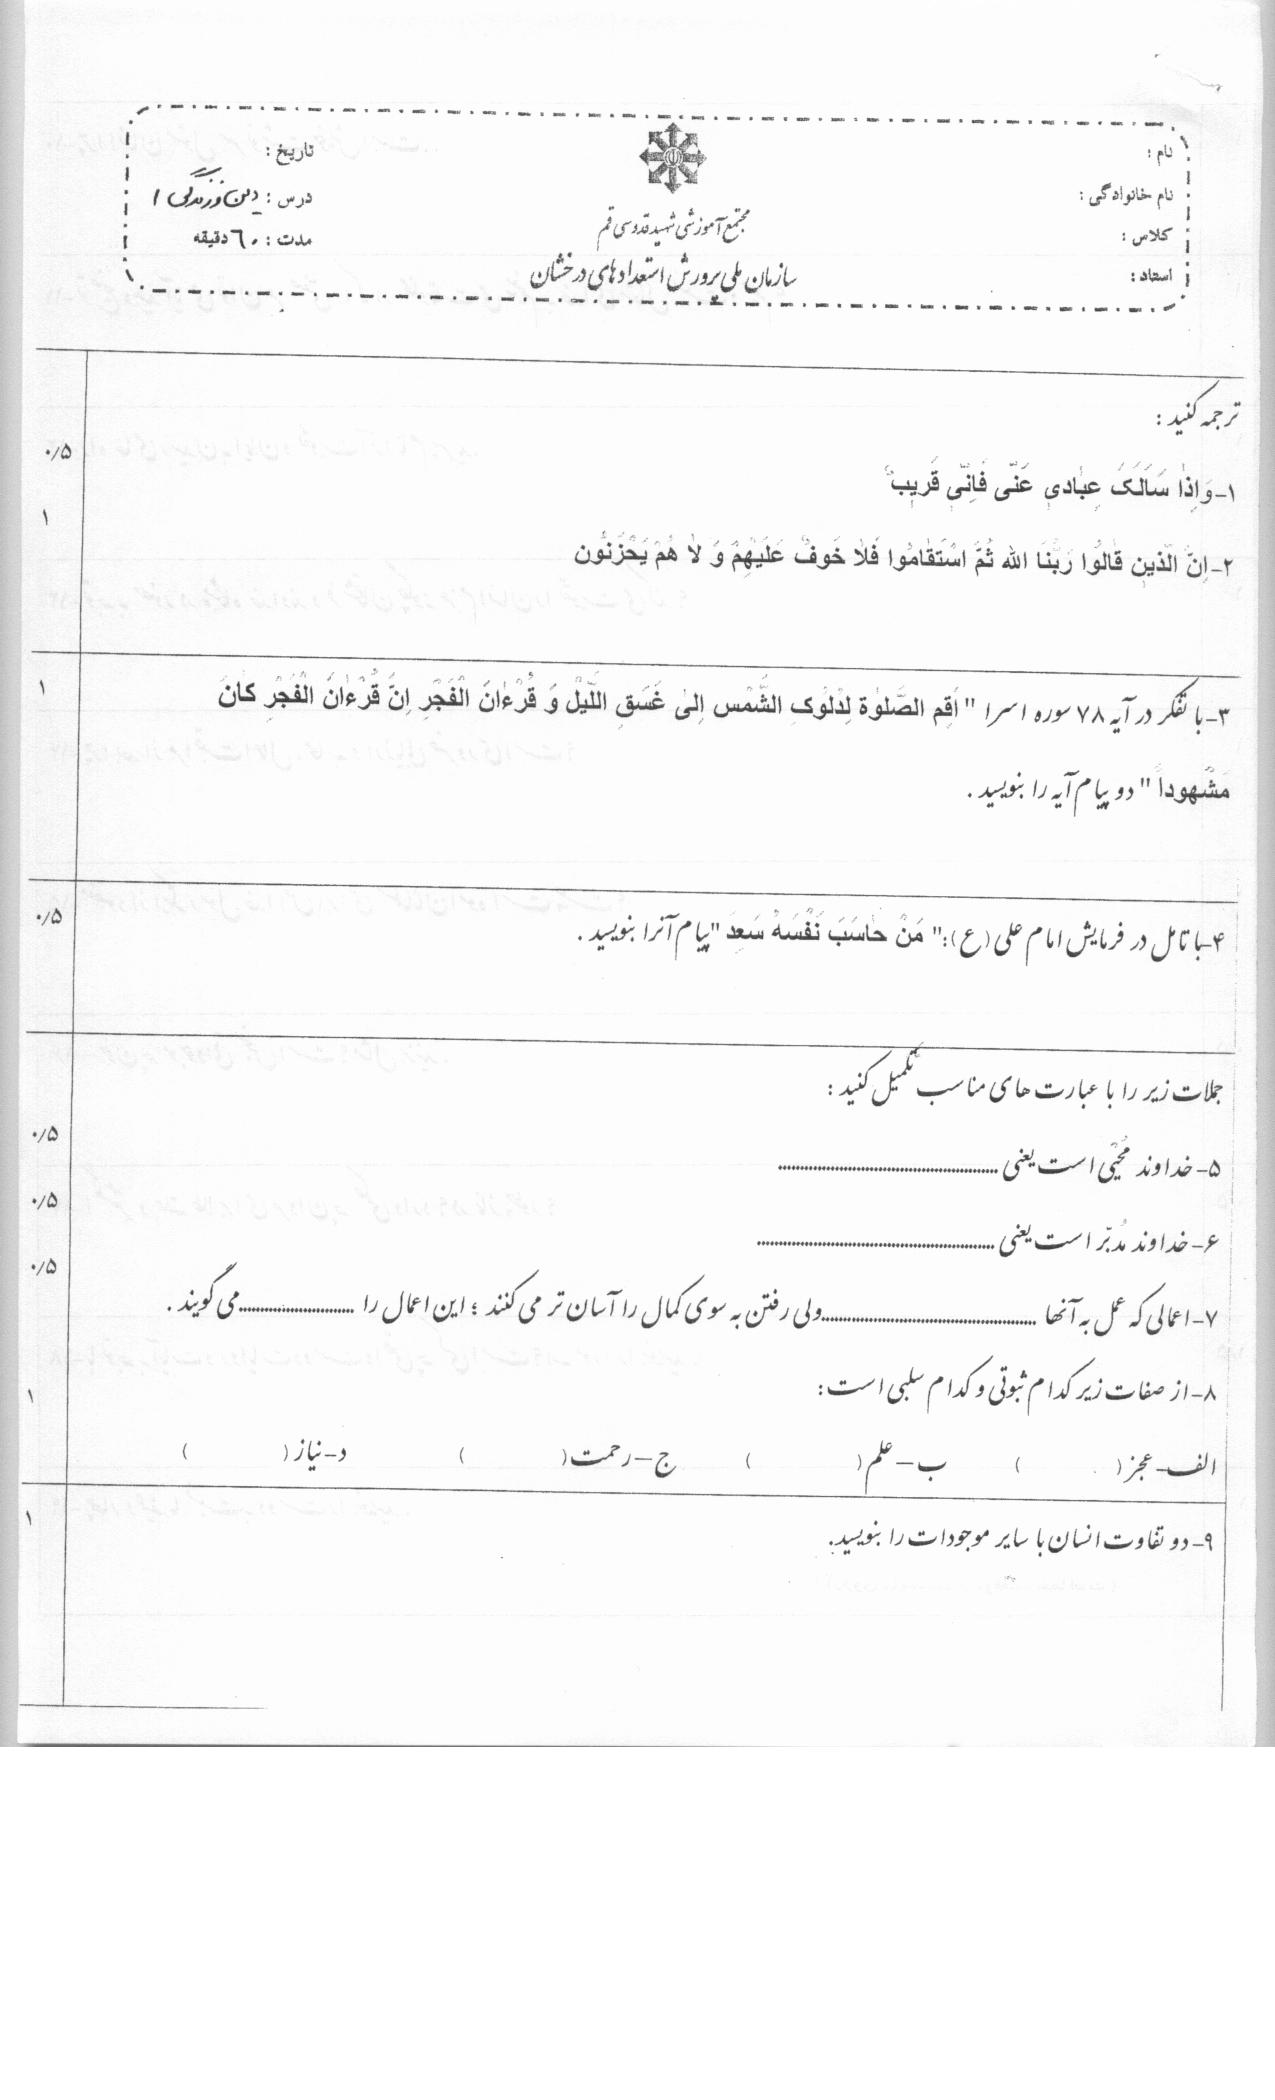 نام :
نام خانوادگی :
کلاس :
استاد :
مجتمع آموزشی شهید قدوسی قم
سازمان ملی پرورش استعدادهای درخشان
تاریخ :
درس : دین و زندگی ۱
مدت : ۶۰ دقیقه
ترجمه کنید :
۱-وَاِذٰا سَاَلَکَ عِبٰادي عَنّي فَاِنّي قَریبٌ ۰/۵
۲-اِنَّ الَّذینِ قٰالُوا رَبُّنَا الله ثُمَّ اسْتَقٰامُوا فَلٰا خَوفٌ عَلَیْهِمْ وَ لٰا هُمْ یَحْزَنُون ۱
۳-با تفکر در آیه ۷۸ سوره اسرا " اَقِم الصَّلوٰة لِدُلوُکِ الشَّمْس اِلیٰ غَسَقِ اللَّیْلْ وَ قُرْءٰانَ الْفَجْرِ اِنَّ قُرْءٰانَ الْفَجْرِ کٰانَ ۱
مَشْهوداً " دو پیام آیه را بنویسید .
۴-با تامل در فرمایش امام علی (ع):" مَنْ حٰاسَبَ نَفْسَهُ سَعِدَ "پیام آنرا بنویسید . ۰/۵
جملات زیر را با عبارت های مناسب تکمیل کنید :
۵- خداوند مُحْیی است یعنی .................... ۰/۵
۶- خداوند مُدبّر است یعنی .................... ۰/۵
۷-اعمالی که عمل به آنها ....................ولی رفتن به سوی کمال را آسان تر می کنند ؛ این اعمال را ....................می گویند . ۰/۵
۸-از صفات زیر کدام ثبوتی و کدام سلبی است : ۱
الف-عجز( ) ب-علم( ) ج-رحمت( ) د-نیاز( )
۹-دو تفاوت انسان با سایر موجودات را بنویسید. ۱